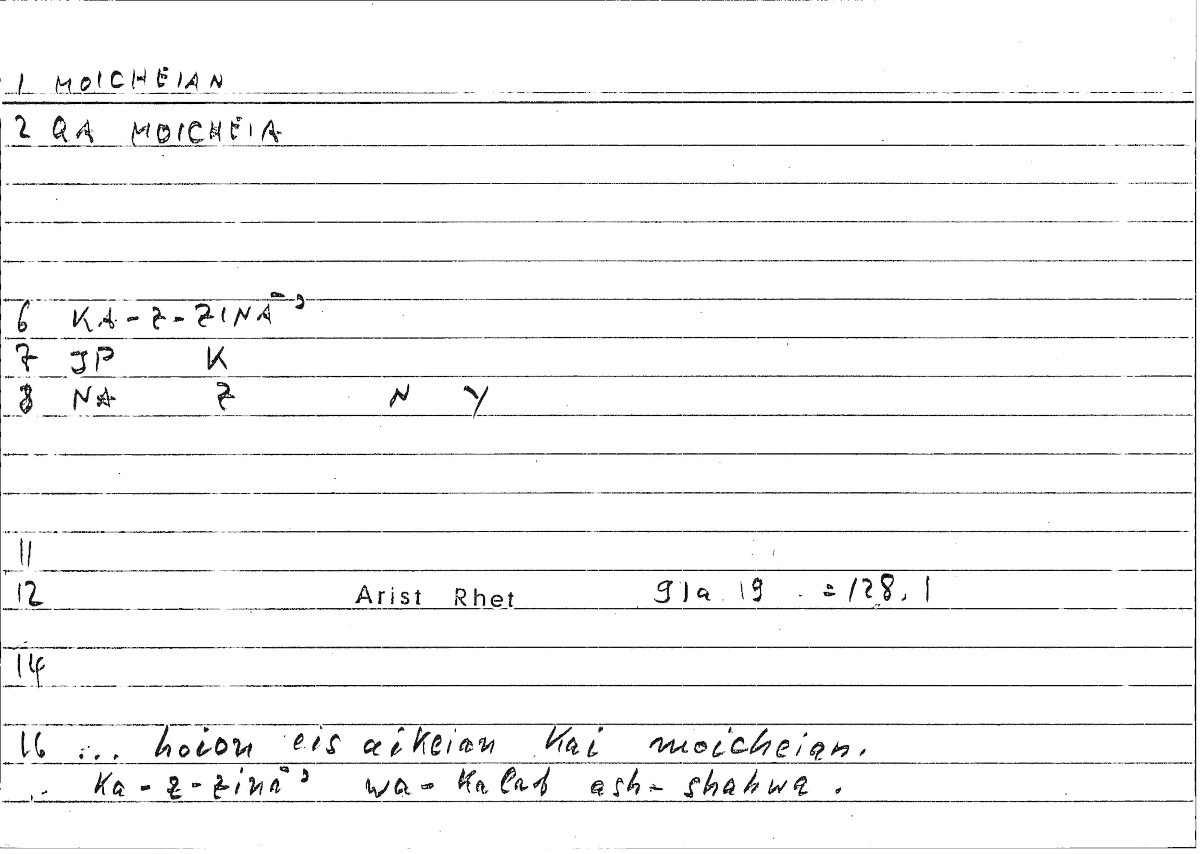 1 MOICHEIAN
2 QA MOICHEIA
6 KA-Z-ZINĀʾ
7 JP K
8 NA Z N Y
11
12 Arist Rhet 91a 19 . = 128, 1
14
16 ... hoion eis aikeian kai moicheian.
.. ka-z-zināʾ wa-kalab ash-shahwa.